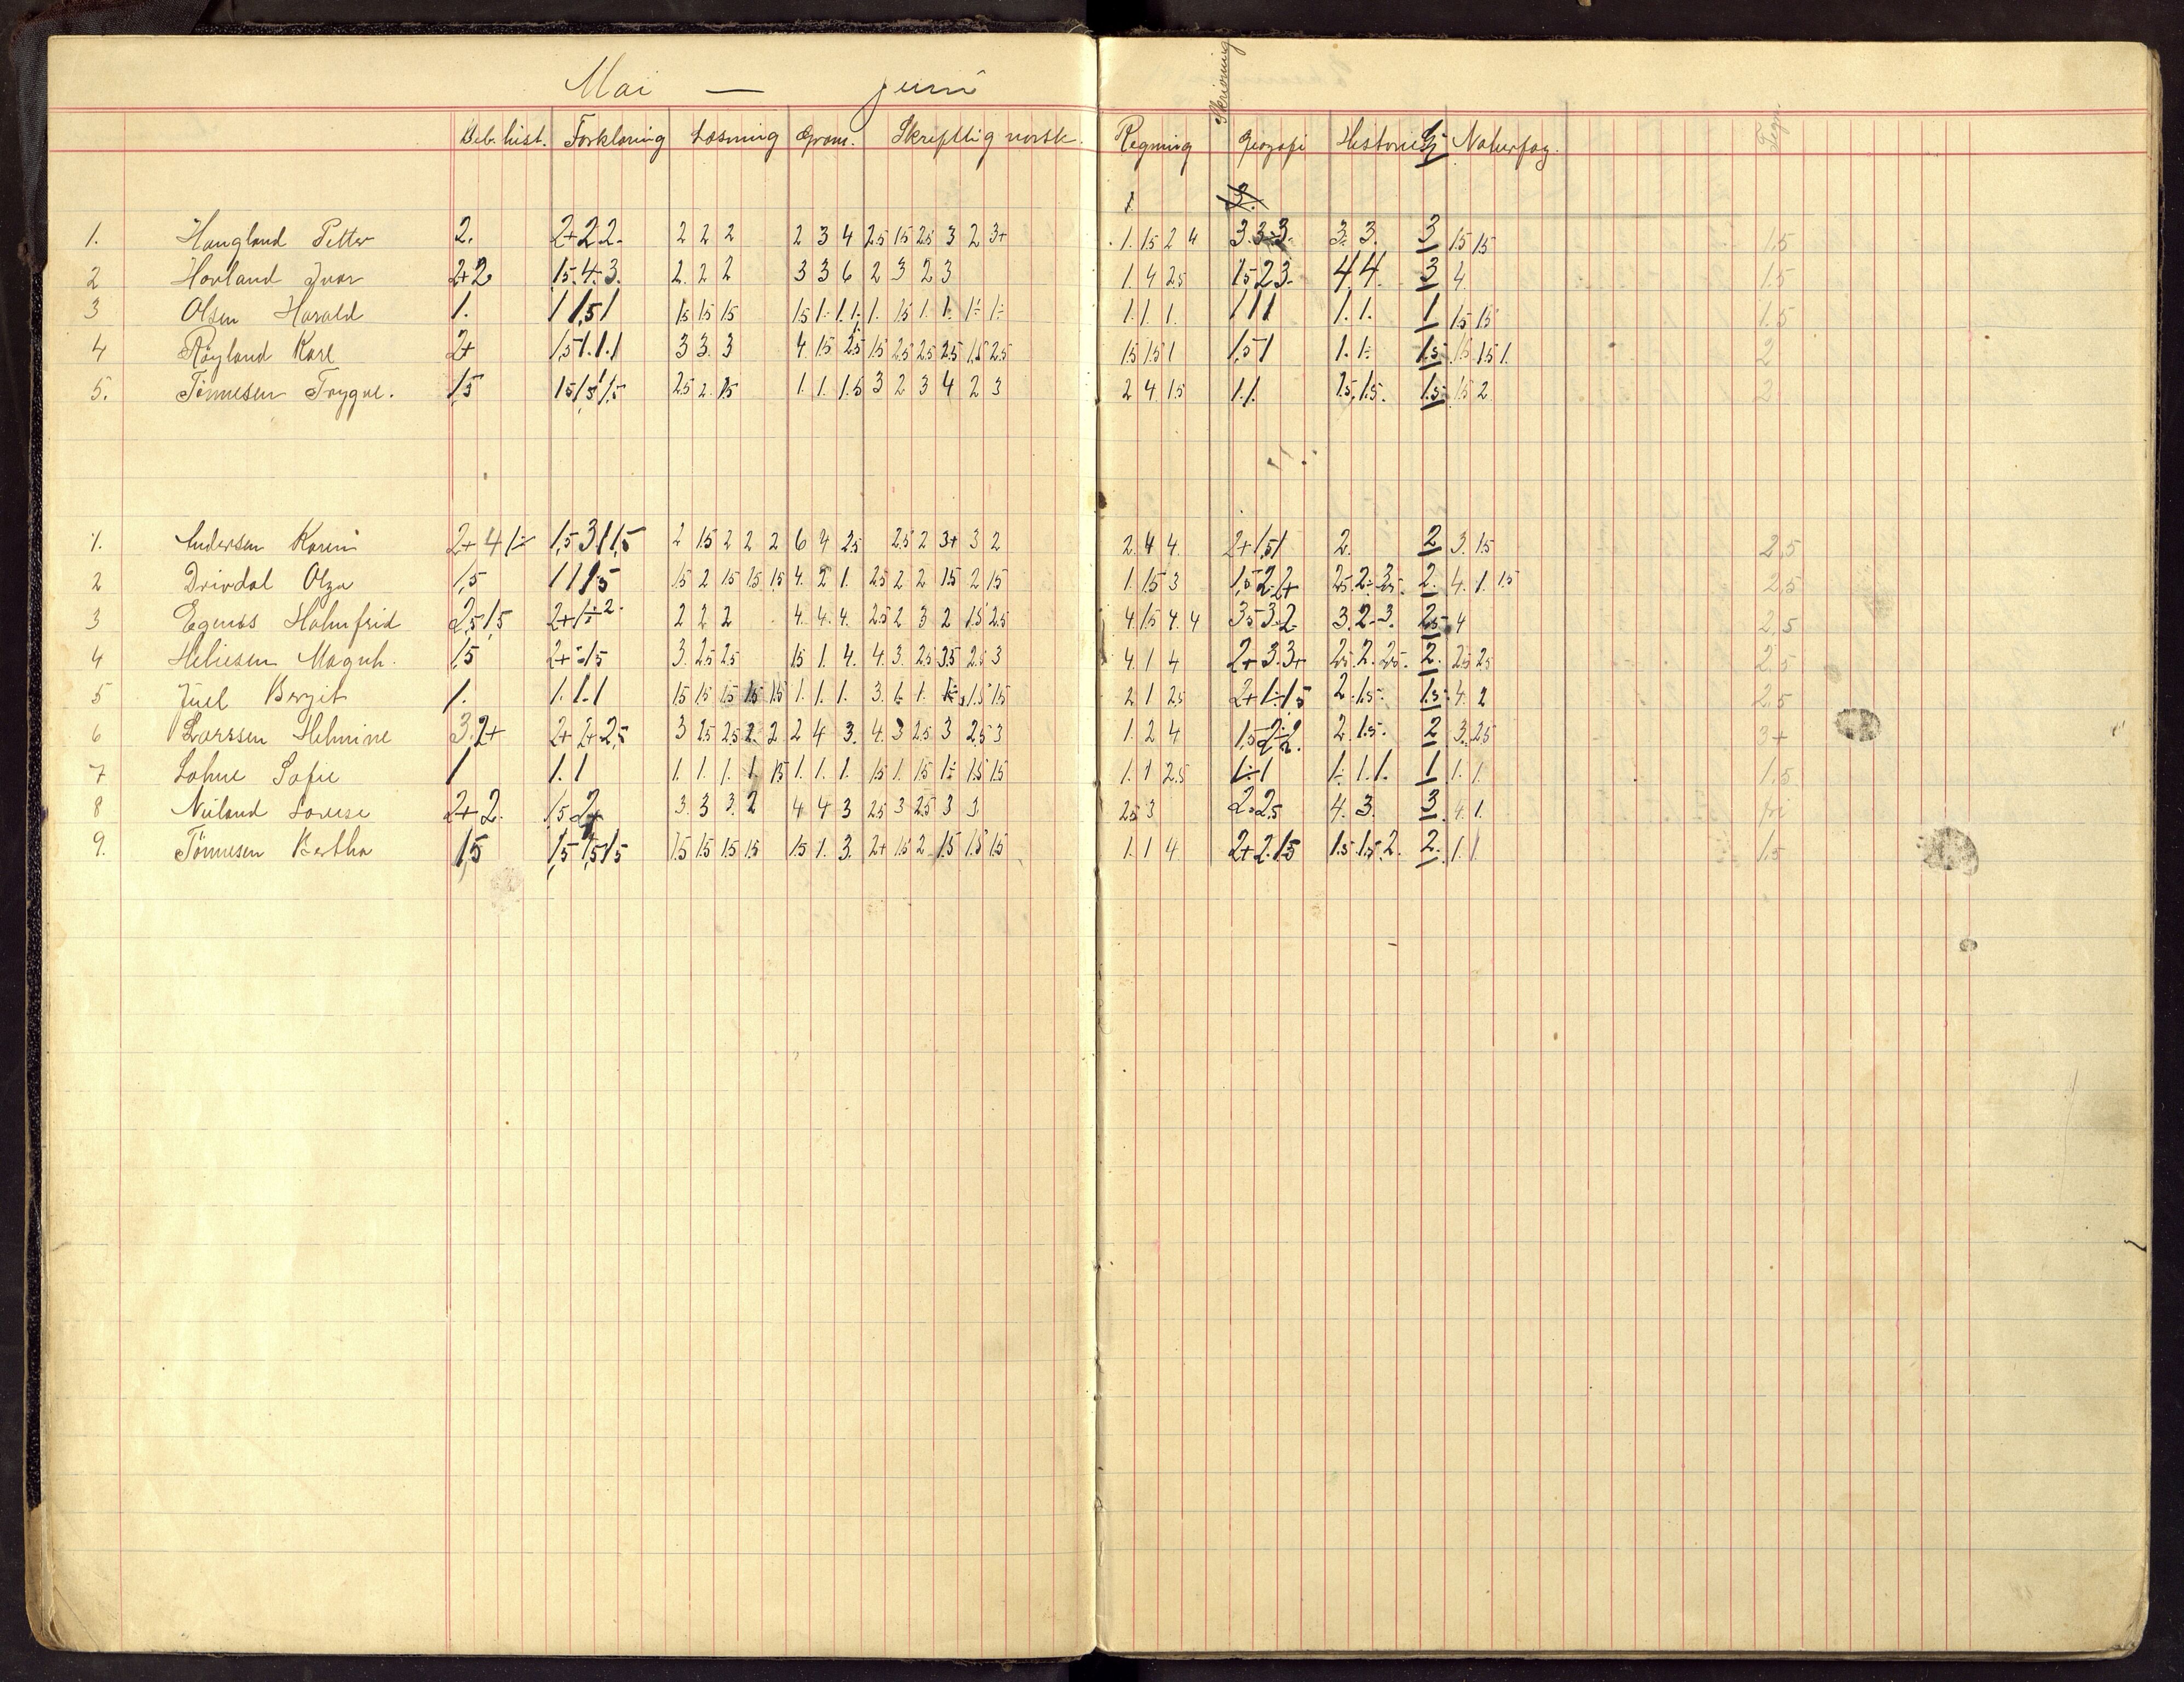 Mai — Juni
Bib. hist. Forklaring Læsning Gram. Skriftlig norsk. Regning Skrivning Geografi Historie Gj Naturfag. Tegn.
1. Haugland Petter 2. 2+ 2 2- 2 2 2 2 3 4 2.5 1.5 2.5 3 2 3+ 1. 1.5 2 4 3. 3. 3 1.5 1.5 1.5
2 Hovland Ivar 2+2 1.5. 4-3. 2. 2 2 3 3 6 2 3 2 3 1 4 2.5 1.5 2 3- 4. 4. 3 4. 1.5
3 Olsen Harald 1. 1 1,5 1 1.5 1.5 1.5 1. 1. 1. 1 1 1 1. 1. 1 1.5 1.5 1.5
4 Røyland Karl 2+ 1,5 1. 1. 1 3 3. 3 4. 1.5 2.5 1.5 2.5 2.5 2.5 1.5 2.5 1.5 1.5 1 1,5 1 1. 1÷ 1.5 1.5 1.5 1. 2
5. Tønnesen Trygve. 1,5 2.5 2. 1.5 1. 1. 1.5 3 2 3 4 2 3 2 4. 1.5 1. 1. 1.5. 1.5. 1.5 1.5 2 2
1. Andersen Karen 2+ 4 1÷ 1,5 3 1 1,5 2 1.5 2 2 2 6 4 2.5 2.5 2 3+ 3 2 2. 4 4. 2+ 1,5 1 2. 2 3. 1.5 2,5
2 Drivdal Olga 1,5 1 1 1,5 1.5 2 1.5 1.5 1.5 4. 2 1. 2.5 2 2 1.5 2 1.5 1. 1.5 3 1,5 2 2+ 2. 4. 1. 1.5 2,5
3 Egenæs Holmfrid 2,5 1,5 2+ 1÷ 2. 2 2 2 4. 4. 4. 2.5 2 3 2 1.5 2.5 4. 1.5 4. 4 3. 2-3. 2.5 4 2,5
4 Heliesen Magnh. 1,5 3. 2.5 2.5 1.5 1. 4. 4. 3. 2.5 3.5 2.5 3 4. 1 4 2+ 3. 3+ 2.5. 2. 2.5. 2. 2.5 2.5 2,5
5 Juel Bergit 1. 1. 1. 1 1.5 1.5 1.5 1.5 1.5 1. 1. 1. 2 1 2.5 2+ 1÷ 1,5 2. 1.5. 1.5 4. 2 2.5
6 Larssen Helmine 3. 2+ 2+ 2+ 2,5 3 2.5 2 2 4 3. 4. 3 2.5 3 2.5 3 1. 2 4 2. 1.5. 2 3. 2.5 3+
7 Lohne Sofie 1 1. 1 1. 1. 1. 1. 1.5 1. 1. 1. 1.5 1. 1.5 1÷ 1.5 1.5 1. 1 2.5 1÷ 1 1. 1. 1. 1 1. 1. 1.5
8 Neiland Lovise 2+ 2. 3. 3 3. 2 4 4 3 2.5 3 2.5 3 3. 2.5 3 2. 2,5 4. 3. 3 4. 1. fri
9. Tønnesen Bertha 1,5 1,5 1,5 1,5 1.5 1.5 1.5 1.5 1.5 1. 3. 2+ 1.5 2 1.5 1.5 1.5 1. 1 4 2+ 2. 1.5 1.5. 1.5. 2. 2. 1. 1 1.5